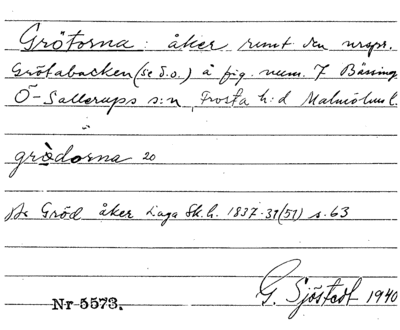 Grötorna: åker runt den urspr.
Grötabacken (se d.o.) å fig. num. 7 Bässing
Ö-Sallerups s:n, Frosta h:d Malmöhus l.
grödorna 20
Gröd åker Laga Sk.h. 1837-39(51) s. 63
G. Sjöstedt 1940
Nr 5573.